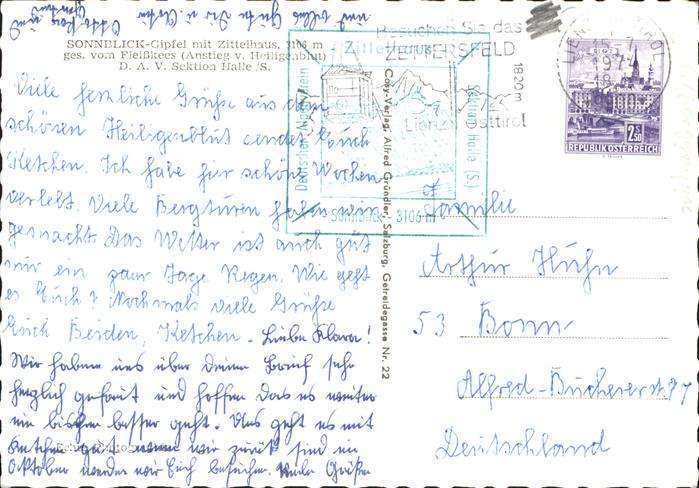 SONNBLICK-Gipfel mit Zittelhaus, 3106 m
ges. vom Fleißkees (Anstieg v. Heiligenblut)
D. A. V. Sektion Halle /S.
Viele herzliche Grüße aus dem
schönen Heiligenblut sendet Euch
Ketchen. Ich habe hir schöne Wochen
verlebt. Viele Bergturen haben wir
gemacht. Das Wetter ist auch gut
nur ein paar Tage Regen. Wie geht
es Euch? Nochmals viele Grüße
Euch Beiden, Ketchen.
Liebe Klara!
Wir haben uns über Deinen Brief sehr
herzlich gefreut und hoffen das es weiter
ein bischen besser geht. Uns geht es mit
Ketchen gut wenn wir zurück sind im
Oktober werden wir Euch besuchen. Viele Grüße
Cosy-Verlag, Alfred Gründler, Salzburg, Getreidegasse Nr. 22
Besuchen Sie das
ZETTERSFELD
1820 m
Lienz Osttirol
Zittelhaus
Deutscher Alpenverein
Halle (S.)
Sonnblick 3106 m
LIENZ
2.50
REPUBLIK ÖSTERREICH
Familie
Arthur Huhn
53 Bonn
Alfred-Buchererstr. 97
Deutschland